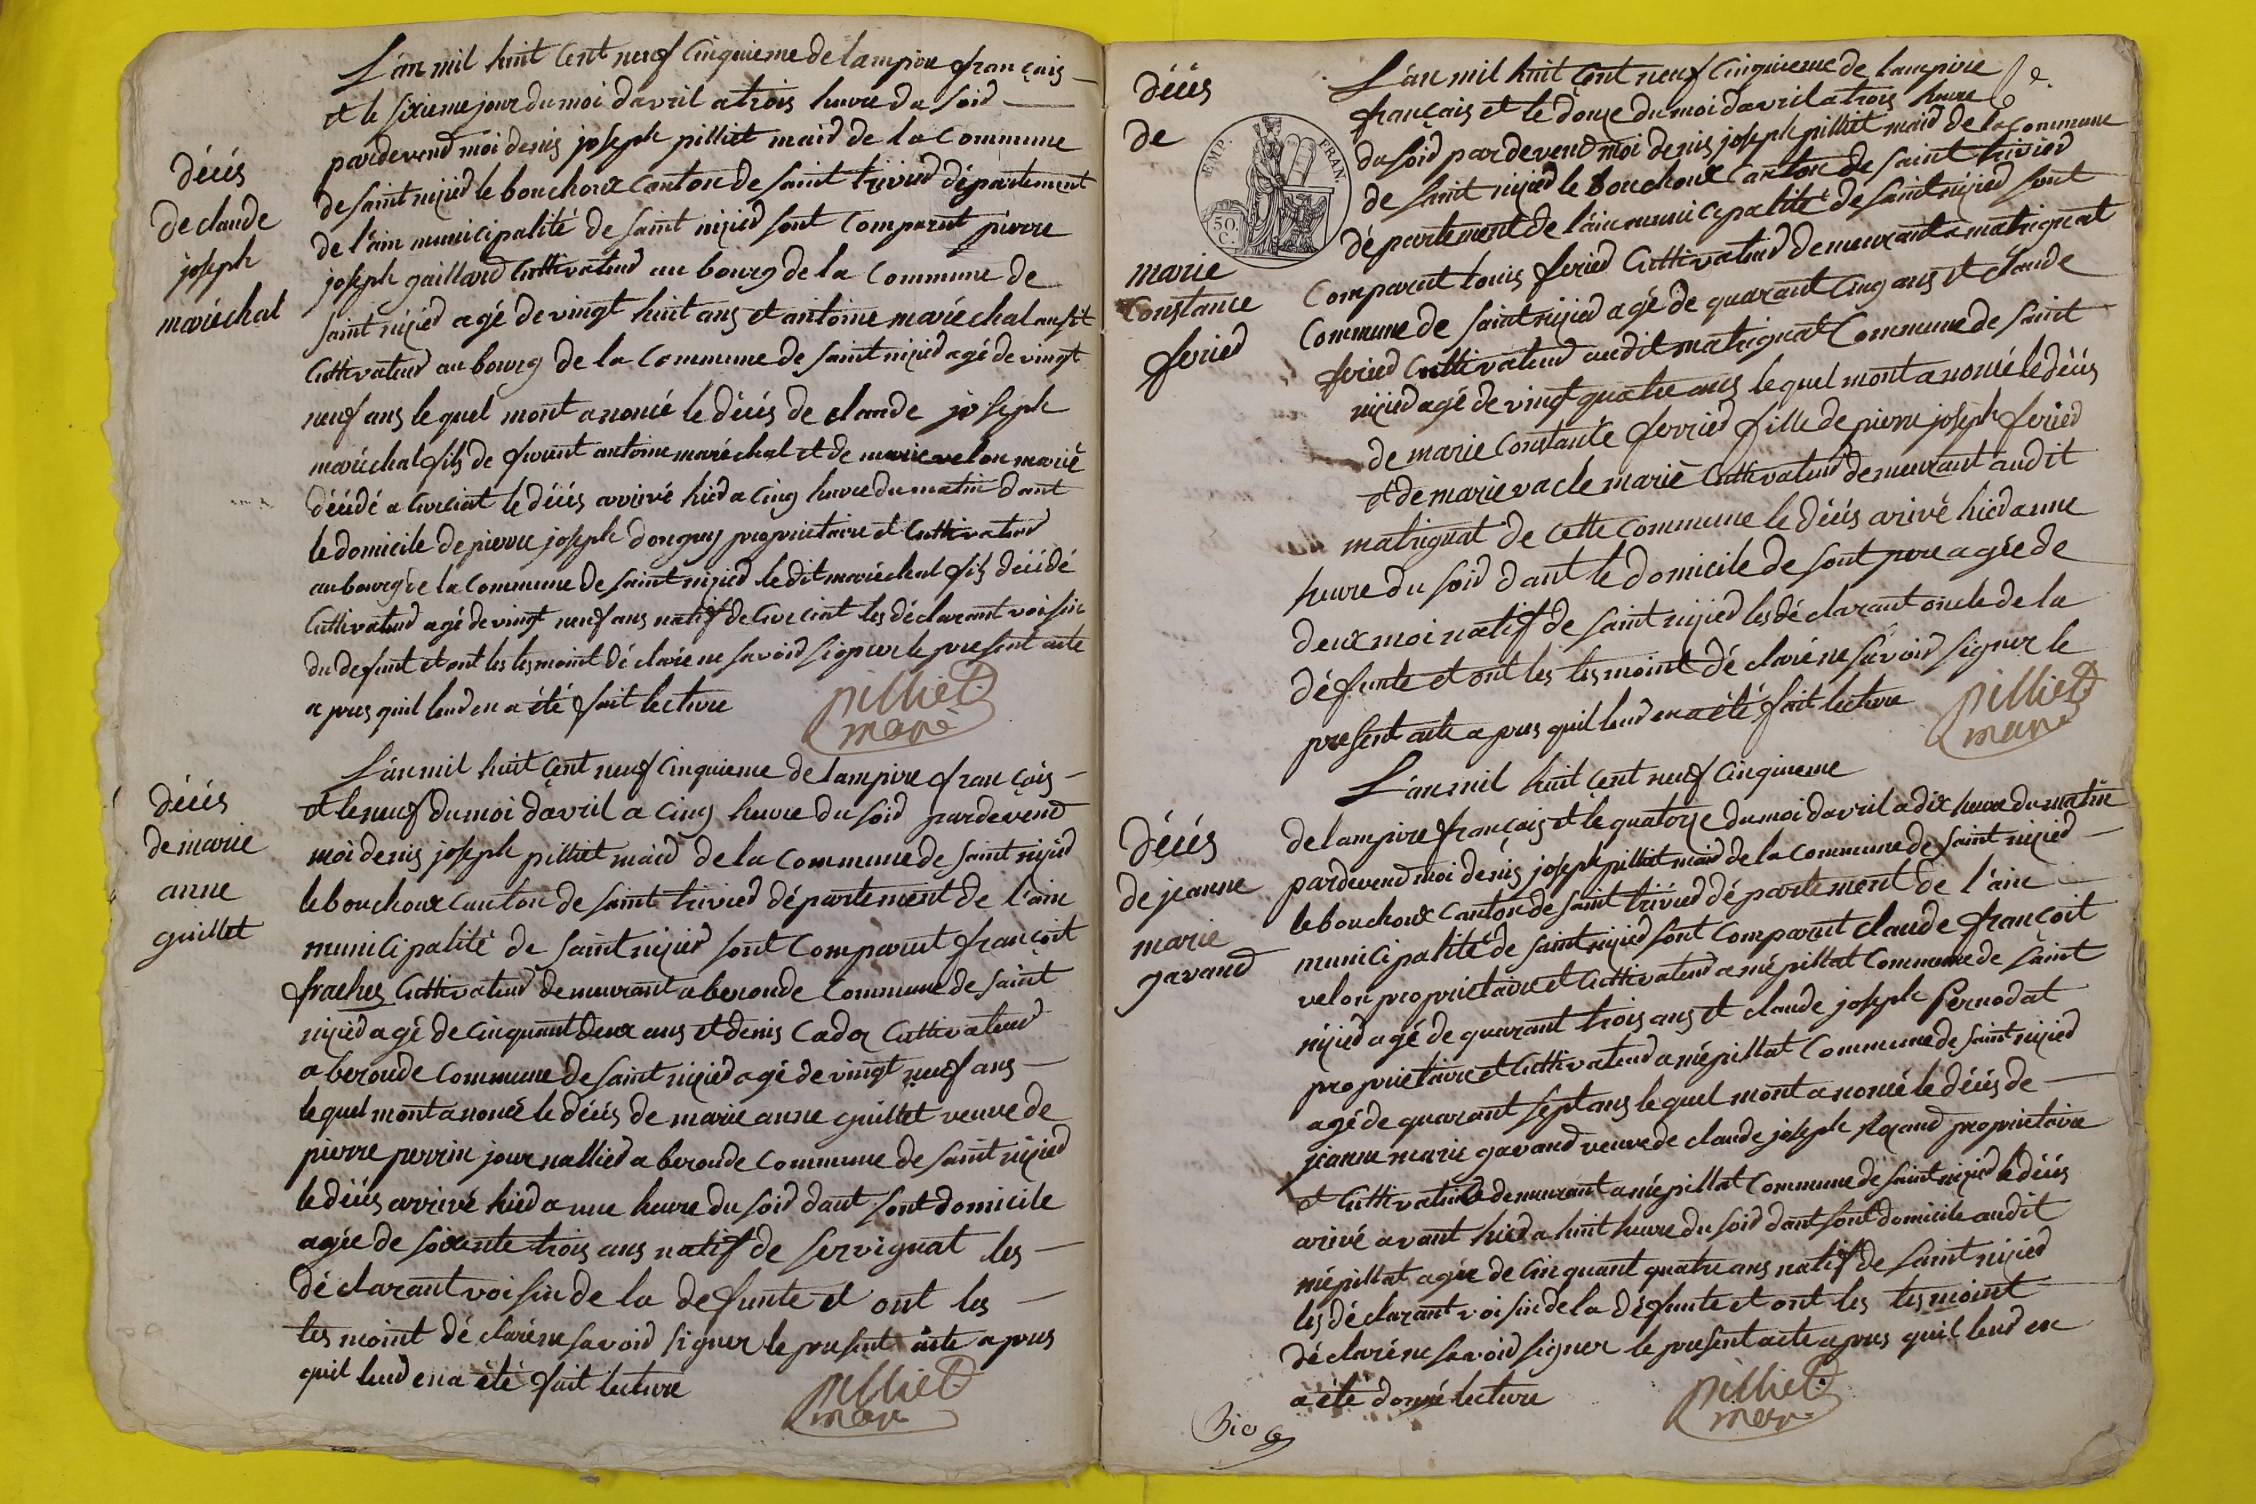 L'an mil huit cent neuf cinquieme de lampire français
et le sixieme jour du moi davril a trois heure du soid
pardevend moi denis joseph pilliet maid de la commune
de saint nizied le bouchoux canton de saint trivied département
de l'ain municipalité de saint nizied sont comparut pierre
joseph gaillard cultivateud au bourg de la commune de
saint nizied agé de vingt huit ans et antoine maréchal ausit
cultivateud au bourg de la commune de saint nizied agé de vingt
neuf ans le quel mont anoncé le décés de claude joseph
maréchal fils de antoine maréchal et de marie velon marié
décédé a curciat le décés arrivé hied a cinq heure du matin dant
le domicile de pierre joseph donguy proprietaire et cultivateud
au bourg de la commune de saint nizied le dit maréchal fils décédé
cultivateud agé de vingt neuf ans natif de curciat les déclarant voisin
du defunt et ont les tesmoint déclaré ne savoid signer le present acte
a pres quil leud en a été fait lecture
pilliet
mare
décés
de claude
joseph
maréchal
L'an mil huit cent neuf cinquieme de lampire français
et le neuf du moi davril a cinq heure du soid pardevend
moi denis joseph pilliet maid de la commune de saint nizied
le bouchoux canton de saint trivied département de l'ain
municipalité de saint nizied sont comparut françoit
frachey cultivateud demeurant a beronde commune de saint
nizied agé de cinquant deux ans et denis cadoz cultivateud
a beronde commune de saint nizied agé de vingt neuf ans
le quel mont anoncé le décés de marie anne guillet veuve de
pierre perrin journallied a beronde commune de saint nizied
le décés arrivé hied a une heure du soid dant sont domicile
agée de soixente trois ans natif de servignat les
déclarant voisin de la defunte et ont les
tesmoint déclaré ne savoid signer le present acte a pres
quil leud en a été fait lecture
pilliet
mare
décés
de marie
anne
guillet
L'an mil huit cent neuf cinquieme de lampire
français et le douze du moi davril a trois heure
du soid pardevend moi denis joseph pilliet maid de la commune
de saint nizied le bouchoux canton de saint trivied
département de l'ain municipalité de saint nizied sont
comparut louis feried cultivateud demeurant a matrignat
commune de saint nizied agé de quarant cinq ans et claude
feried cultivateud audit matrignat commune de saint
nizied agé de vingt quatre ans le quel mont anoncé le décés
de marie constante ferried fille de pierre joseph feried
et de marie vacle marié cultivateud demeurant audit
matrignat de cette commune le décés arivé hied a une
heure du soid dant le domicile de sont pere agée de
deux moi natif de saint nizied les déclarant oncle de la
défunte et ont les tesmoint déclaré ne savoid signer le
present acte a pres quil leud en a été fait lecture
pilliet
mare
décés
de
marie
constance
feried
EMP. FRAN.
50.
C.
L'an mil huit cent neuf cinquieme
de lampire français et le quatorze du moi davril a dix heure du matin
pardevend moi denis joseph pilliet maid de la commune de saint nizied
le bouchoux canton de saint trivied département de l'ain
municipalité de saint nizied sont comparut claude françoit
velon proprietaire et cultivateud a mépillat commune de saint
nizied agé de quarant trois ans et claude joseph pernodat
proprietaire et cultivateud a mépillat commune de saint nizied
agé de quarant sept ans le quel mont anoncé le décés de
jeanne marie gavand veuve de claude joseph proprietaire
et cultivatrice demeurant a mépillat commune de saint nizied le décés
arivé avant hied a huit heure du soid dant sont domicile audit
mépillat agée de cinquant quatre ans natif de saint nizied
les déclarant voisin de la défunte et ont les tesmoint
déclaré ne savoid signer le present acte a pres quil leud en
a été donné lecture
pilliet
mare
décés
de jeanne
marie
gavand